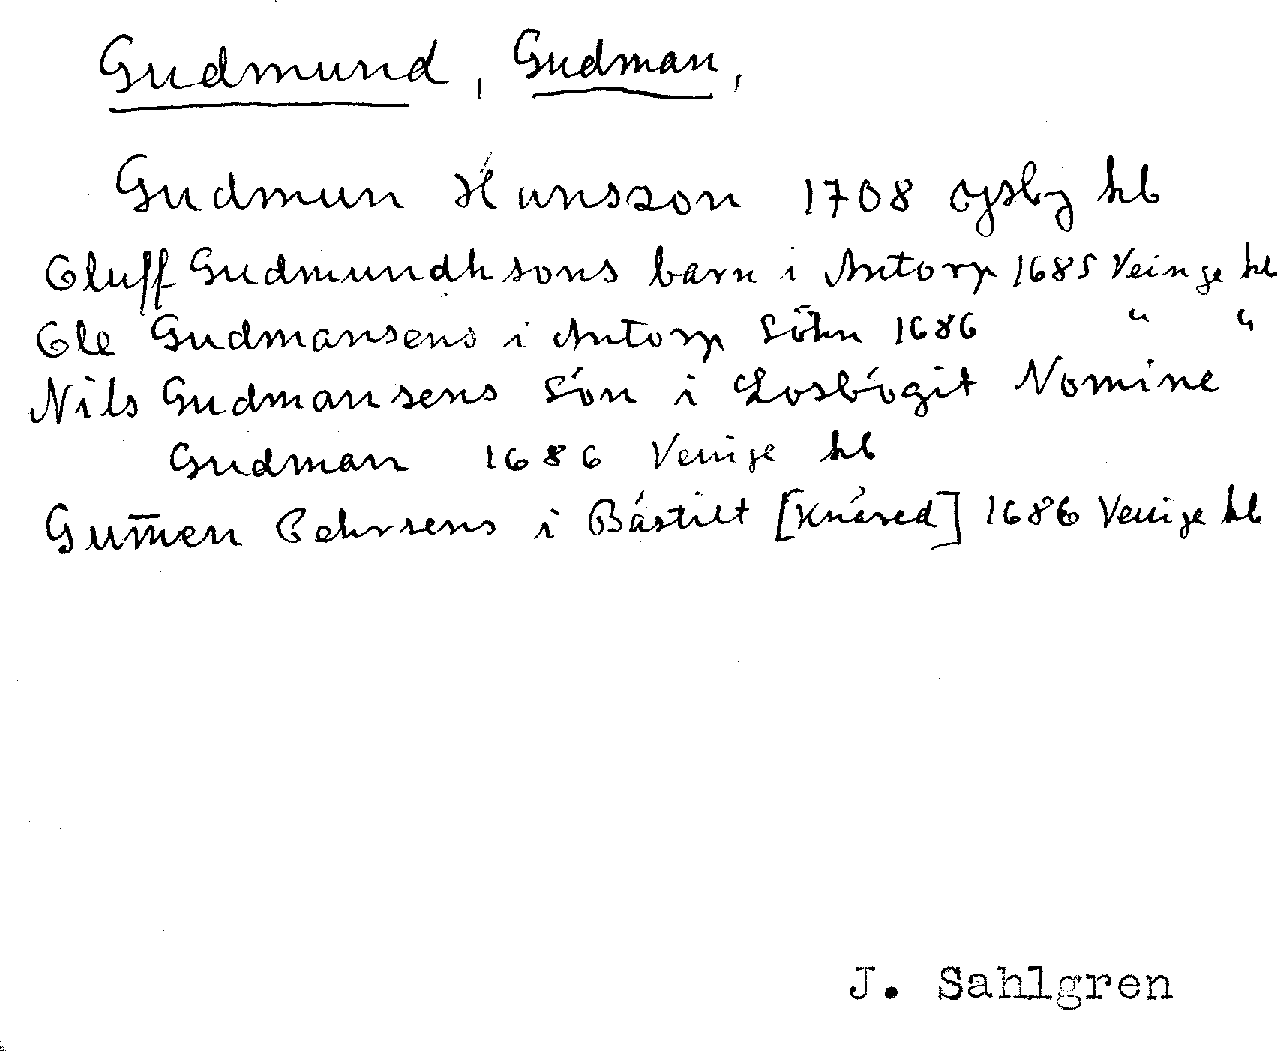 Gudmund, Gudman,
Gudmun Hansson 1708 Ojsby kb
Oluff Gudmundhsons barn i Antorp 1685 Veinge kb
Ole Gudmansens i Antorp Söhn 1686 " "
Nils Gudmansens Sön i Losbögit Nomine
Gudman 1686 Veinge kb
Gum̄en Pehrsens i Båstilt [Knäred] 1686 Veinge kb
J. Sahlgren